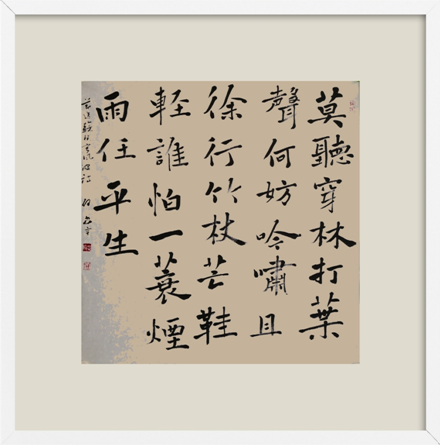 莫聽穿林打葉
聲何妨吟嘯且
徐行竹杖芒鞋
輕誰怕一蓑煙
雨任平生